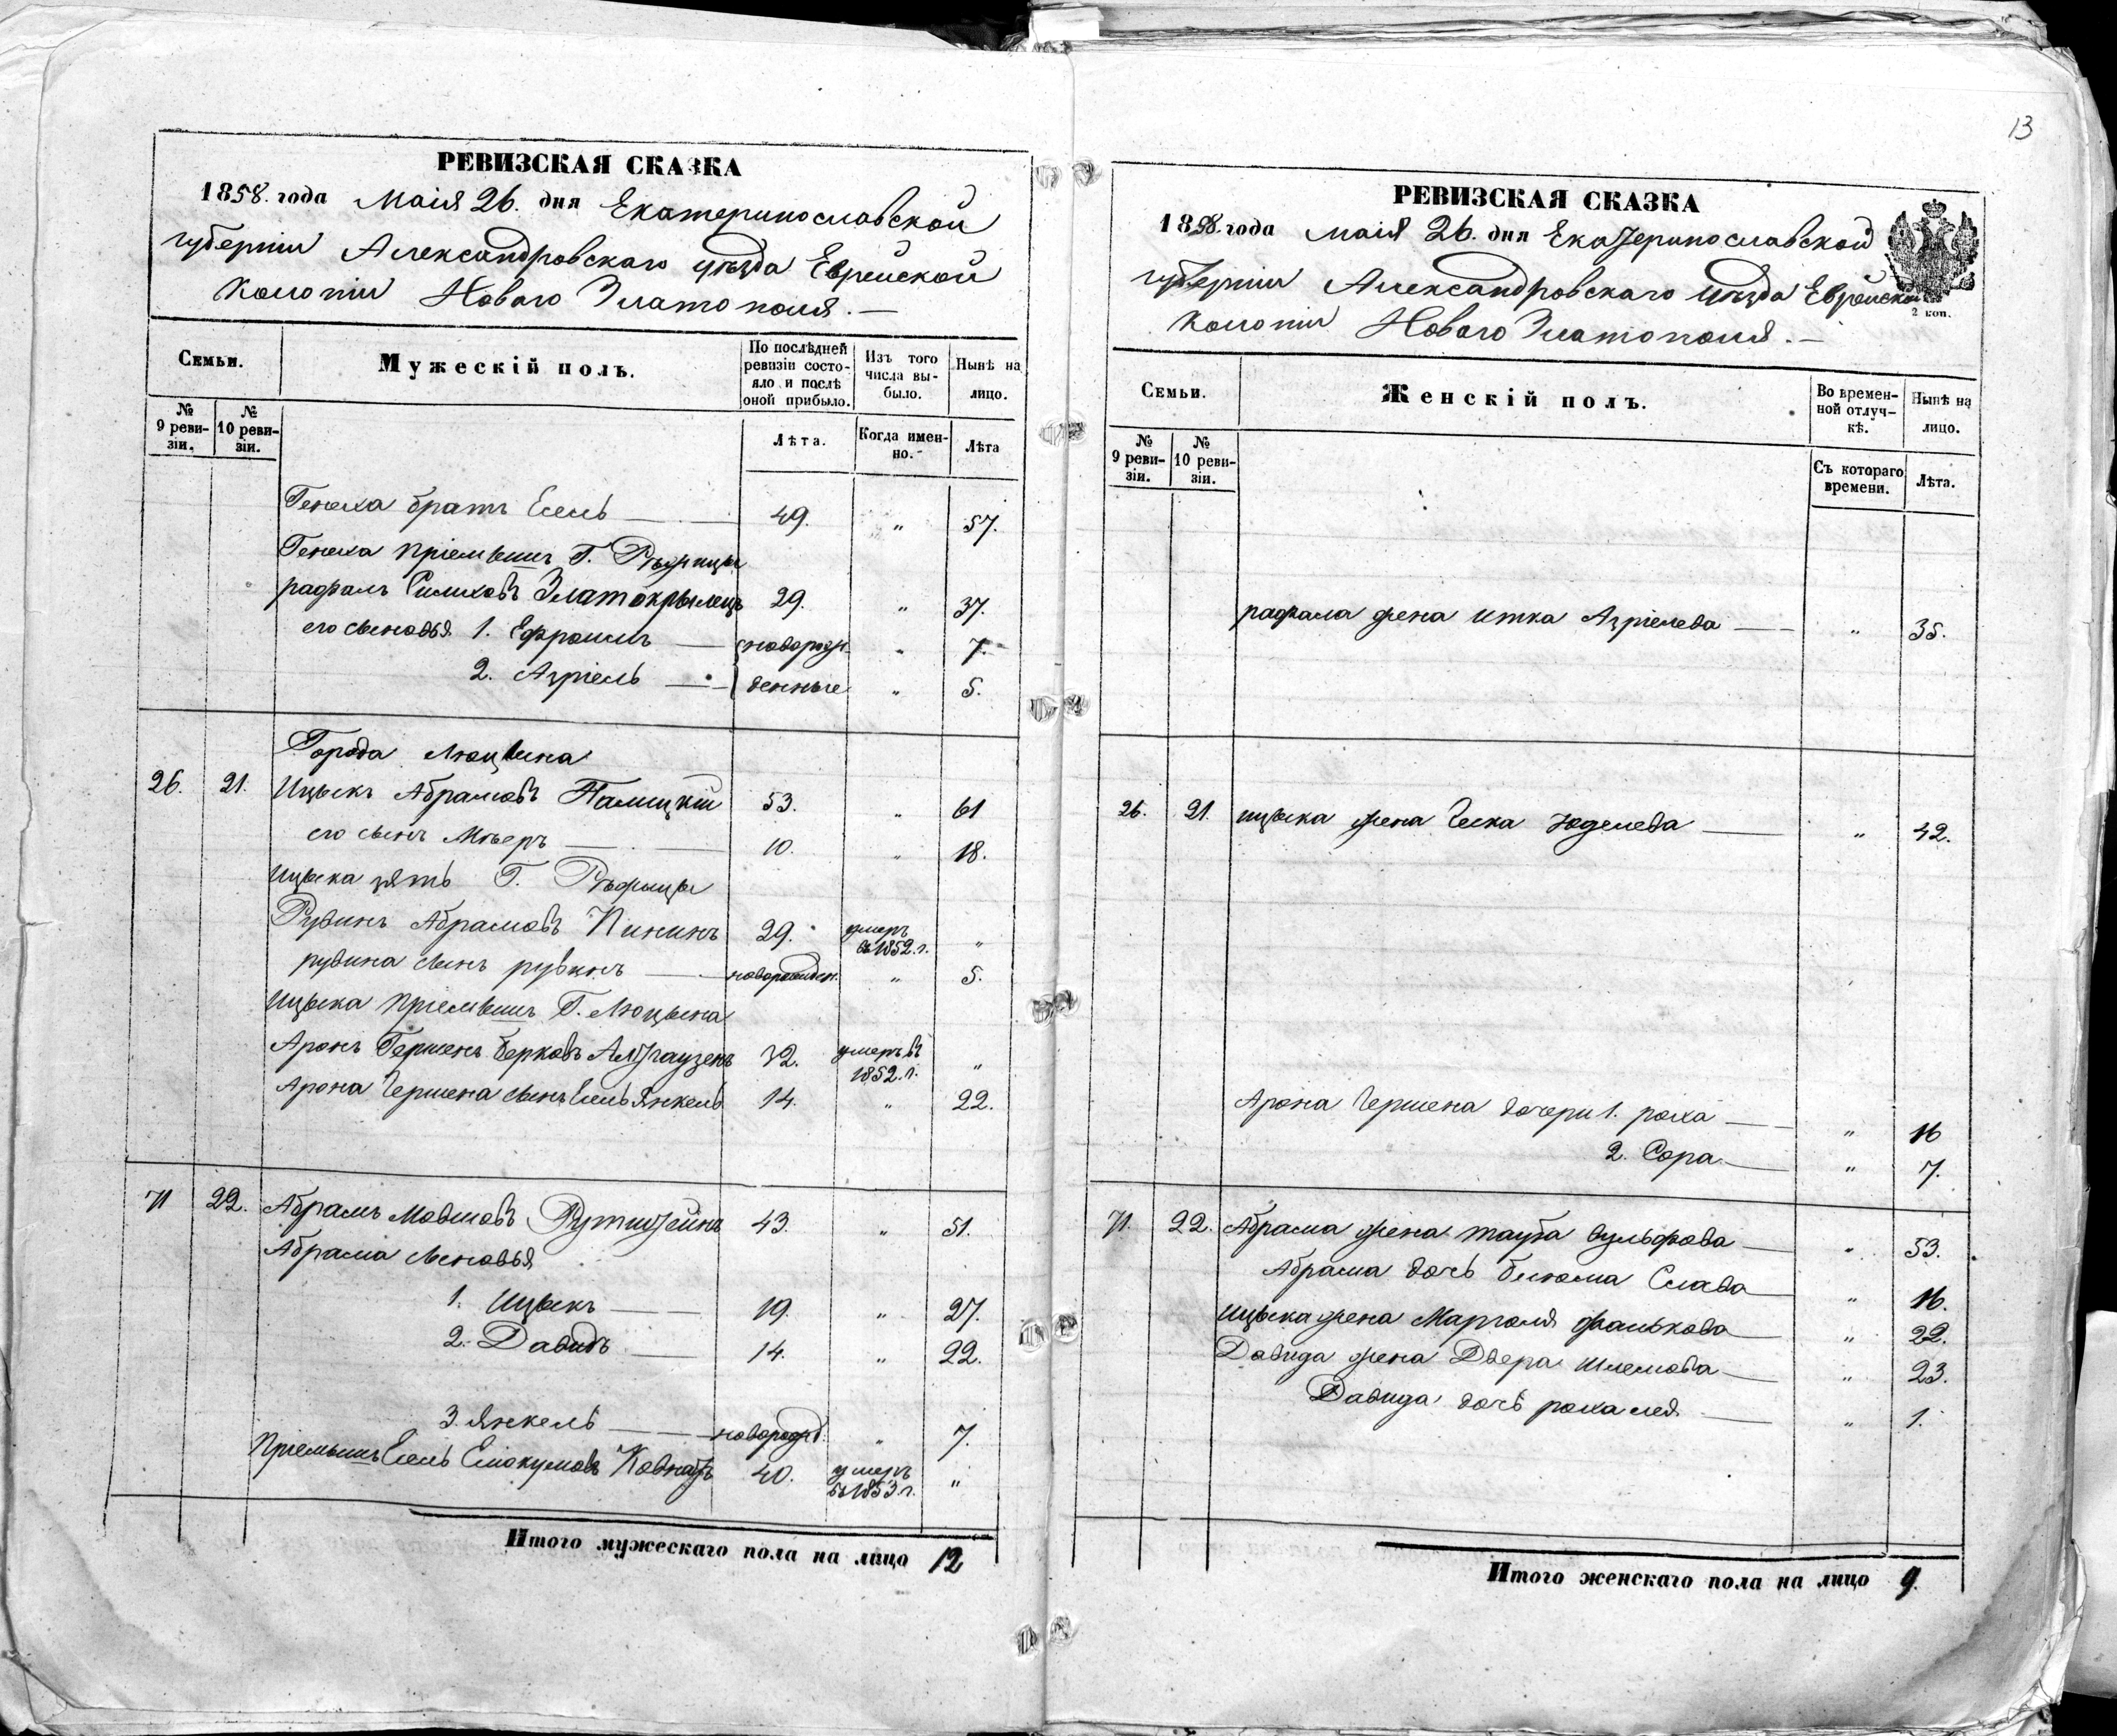 РЕВИЗСКАЯ СКАЗКА
1858. года Маія 26. дня Екатеринославской
губерніи Александровскаго уѣзда Еврейской
Колоніи Новаго Златополя. —
Семьи.
Мужескій полъ.
По послѣдней ревизіи состояло и послѣ оной прибыло.
Изъ того числа выбыло.
Нынѣ на лицо.
№ 9 ревизіи.
№ 10 ревизіи.
Лѣта.
Когда именно.
Лѣта
Генеха братъ Есель — 49. " 57.
Генеха пріемышъ Г. Рѣжицы
рафалъ Златокрылецъ 29. " 37.
его сыновья 1. Ефроимъ — новорож- " 7.
2. Азріель — денные " 5.
Города Люцына
26. 21. Ицыкъ Абрамовъ Палицкій 53. " 61
его сынъ Мѣеръ — 10. " 18.
Ицыка зять Г. Рѣжицы
Рувинъ Абрамовъ Пининъ 29. умеръ въ 1852. г. "
рувина сынъ рувинъ — новорожден. " 5.
Ицыка пріемышъ Г. Люцына
Аронъ Гершенъ Берковъ Алтгаузенъ 32. умеръ въ 1852. г. "
Арона Гершена сынъ Есель Янкель 14. " 22.
71 22. Абрамъ Мовшовъ Рутштейнъ 43. " 51.
Абрама сыновья
1. Ицыкъ — 19. " 27.
2. Давидъ — 14. " 22.
3. Янкель — новорожд. " 7.
Пріемышъ Есель 40. умеръ въ 1853. г. "
Итого мужескаго пола на лицо 12
13
РЕВИЗСКАЯ СКАЗКА
1858. года маія 26. дня Екатеринославской
губерніи Александровскаго уѣзда Еврейской
Колоніи Новаго Златополя. —
2 коп.
Семьи.
Женскій полъ.
Во временной отлучкѣ.
Нынѣ на лицо.
№ 9 ревизіи.
№ 10 ревизіи.
Съ котораго времени.
Лѣта.
рафала жена итка Азріелева — " 35.
26. 21. ицыка жена Юделева — " 42.
Арона Гершена дочери 1. роха — " 16
2. Сора — " 7.
71. 22. Абрама жена тауба вульфова — " 53.
Абрама дочь блюма Слава — " 16.
ицыка жена Марголя фалькова — " 22.
Давида жена Двера шлемова — " 23.
Давида дочь роха лея — " 1.
Итого женскаго пола на лицо 9.